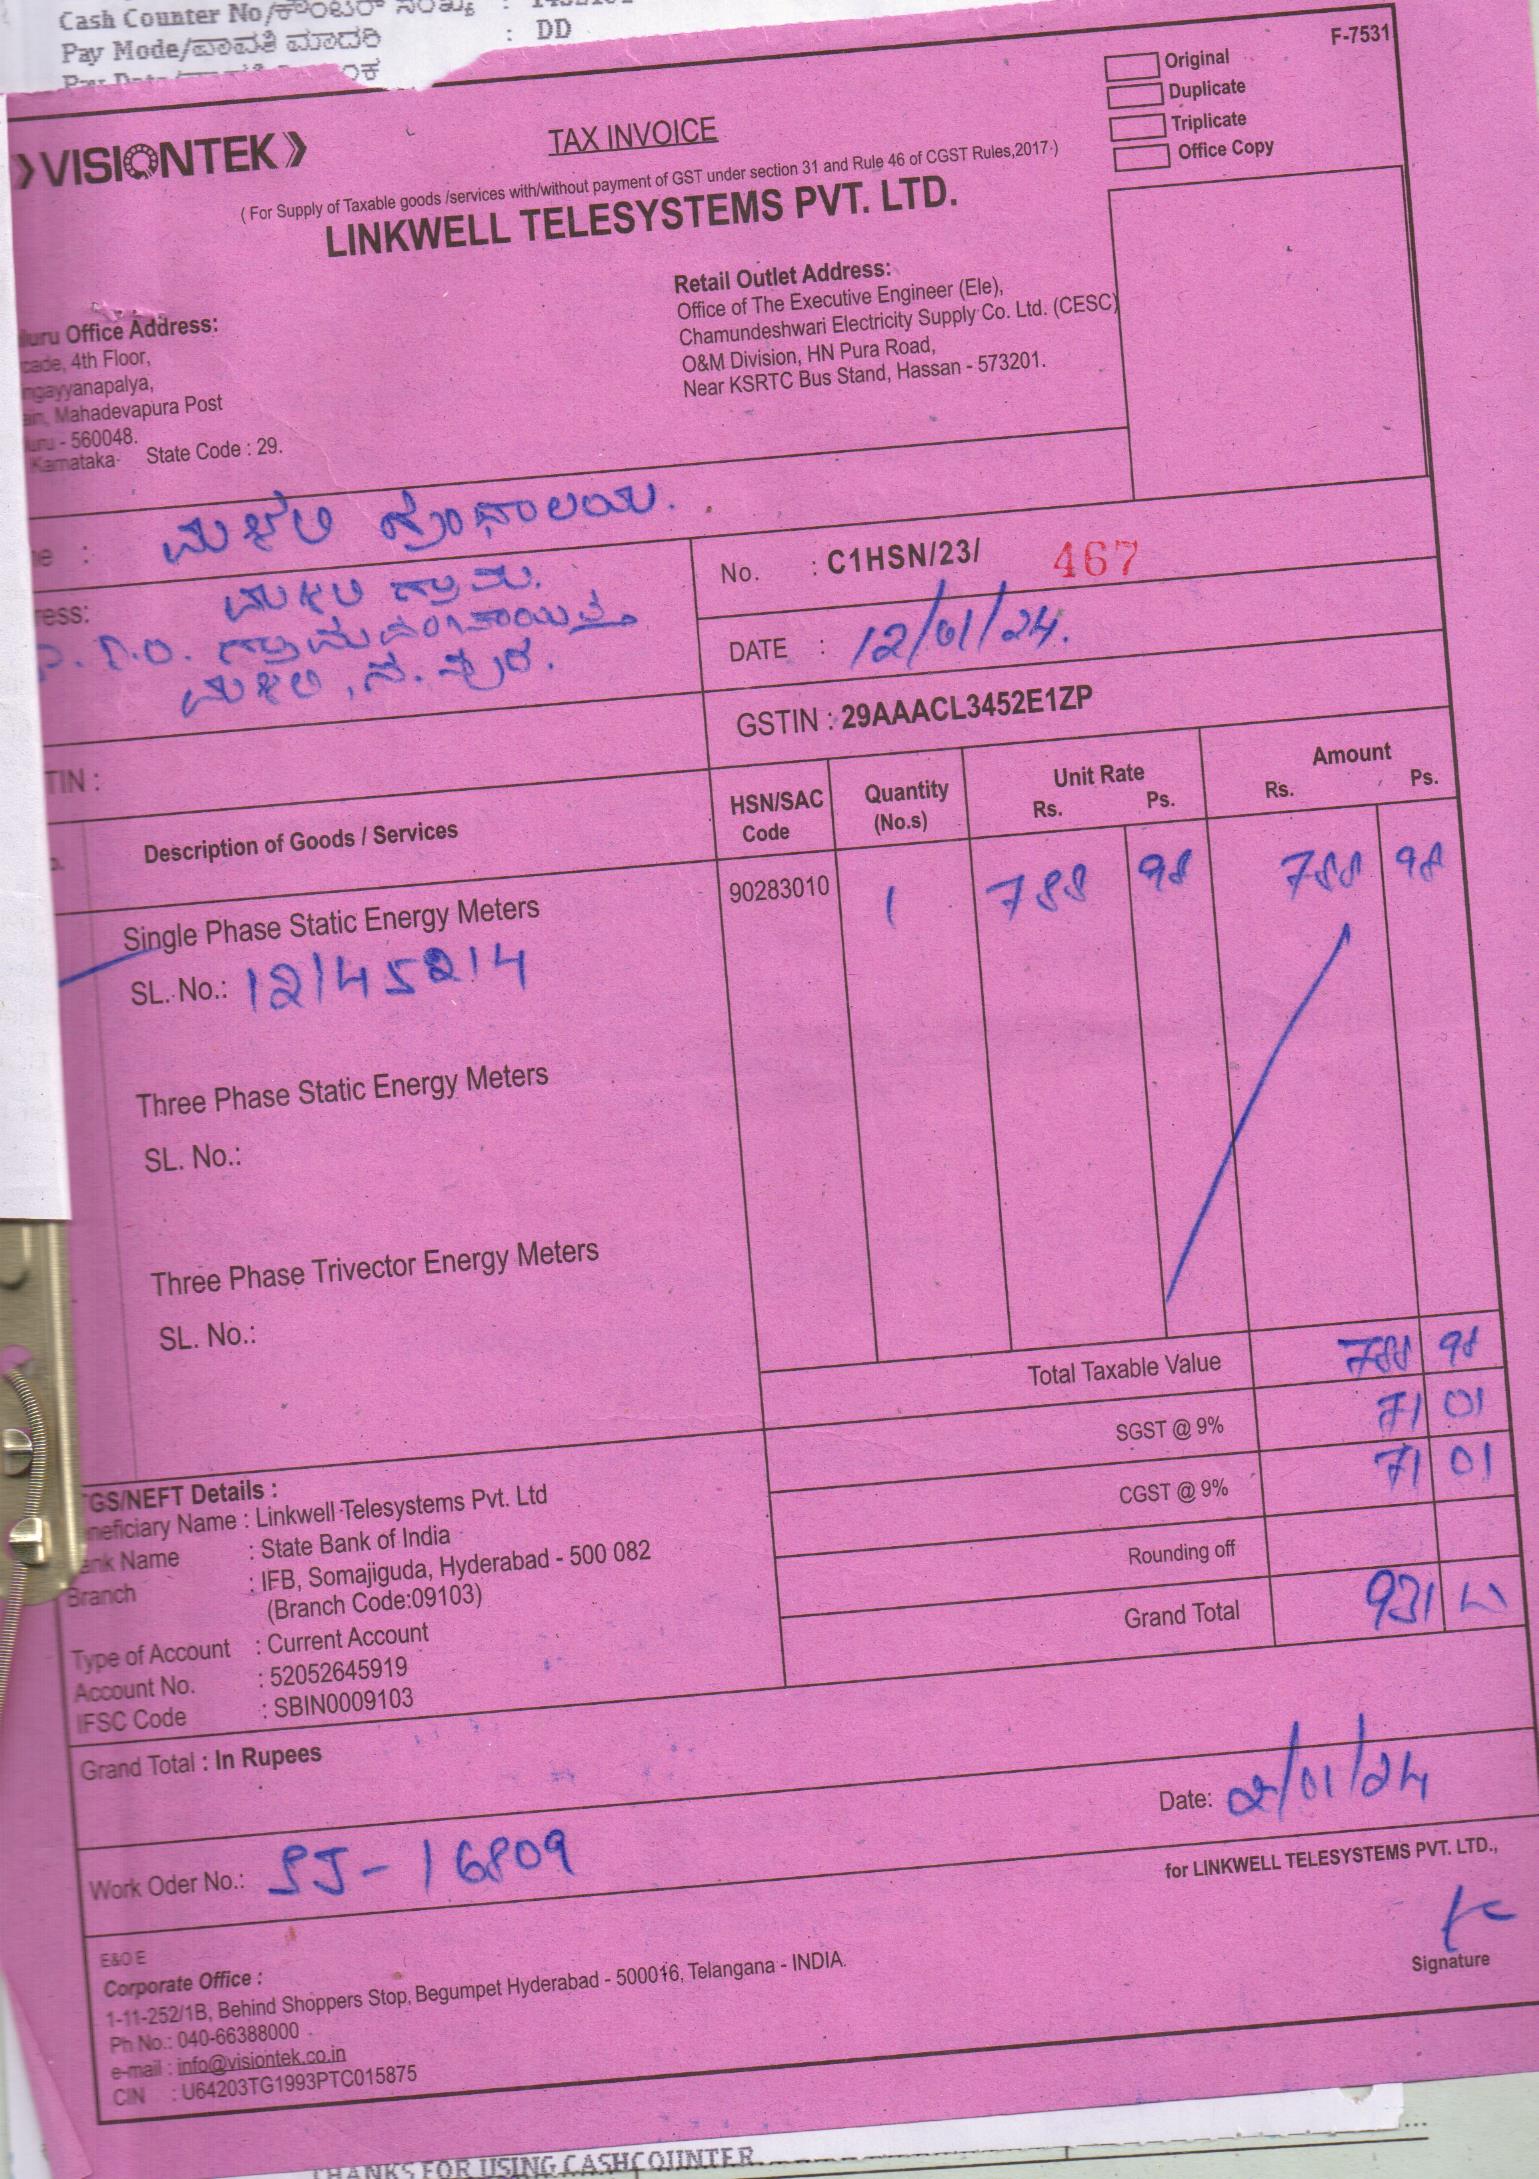 Cash Counter No/ಕೌಂಟರ್ ಸಂಖ್ಯೆ :
Pay Mode/ಪಾವತಿ ಮಾದರಿ : DD
F-7531
Original
Duplicate
Triplicate
Office Copy
VISIONTEK
TAX INVOICE
( For Supply of Taxable goods /services with/without payment of GST under section 31 and Rule 46 of CGST Rules,2017 )
LINKWELL TELESYSTEMS PVT. LTD.
Office Address:
4th Floor,
Mahadevapura Post
- 560048.
Karnataka State Code : 29.
Retail Outlet Address:
Office of The Executive Engineer (Ele),
Chamundeshwari Electricity Supply Co. Ltd. (CESC)
O&M Division, HN Pura Road,
Near KSRTC Bus Stand, Hassan - 573201.
ಮಳಲಿ ಗ್ರಂಥಾಲಯ.
ಮಳಲಿ ಗ್ರಾಮ.
ಗ್ರಾಮ ಪಂಚಾಯಿತಿ
ಮಳಲಿ,
No. : C1HSN/23/ 467
DATE : 12/01/24.
GSTIN : 29AAACL3452E1ZP
Description of Goods / Services
HSN/SAC Code
Quantity (No.s)
Unit Rate Rs. Ps.
Amount Rs. Ps.
Single Phase Static Energy Meters 90283010 1 788 98 788 98
SL. No.: 12145214
Three Phase Static Energy Meters
SL. No.:
Three Phase Trivector Energy Meters
SL. No.:
Total Taxable Value 788 98
SGST @ 9% 71 01
CGST @ 9% 71 01
Rounding off
Grand Total 931
GS/NEFT Details :
Beneficiary Name : Linkwell Telesystems Pvt. Ltd
Bank Name : State Bank of India
Branch : IFB, Somajiguda, Hyderabad - 500 082
(Branch Code:09103)
Type of Account : Current Account
Account No. : 52052645919
IFSC Code : SBIN0009103
Grand Total : In Rupees
Date: 2/01/24
Work Oder No.: SJ-16809
for LINKWELL TELESYSTEMS PVT. LTD.,
Signature
E&O E
Corporate Office :
1-11-252/1B, Behind Shoppers Stop, Begumpet Hyderabad - 500016, Telangana - INDIA.
Ph No.: 040-66388000
e-mail : info@visiontek.co.in
CIN : U64203TG1993PTC015875
THANKS FOR USING CASHCOUNTER